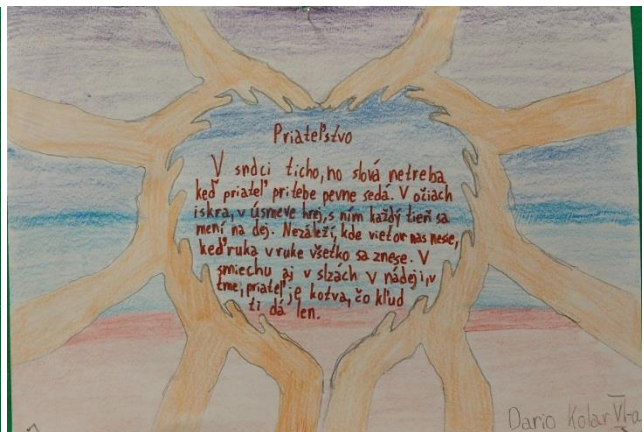 Priateľstvo
V srdci ticho, no slová netreba
keď priateľ pri tebe pevne sedá. V očiach
iskra, v úsmeve hrej, s ním každý tieň sa
mení na dej. Nezáleží, kde vietor nas nese,
keď ruka v ruke všetko sa znese. V
smiechu aj v slzách v nádeji, v
tme, priateľ je kotva, čo kľud
ti dá len.
Dario Kolar VI-a